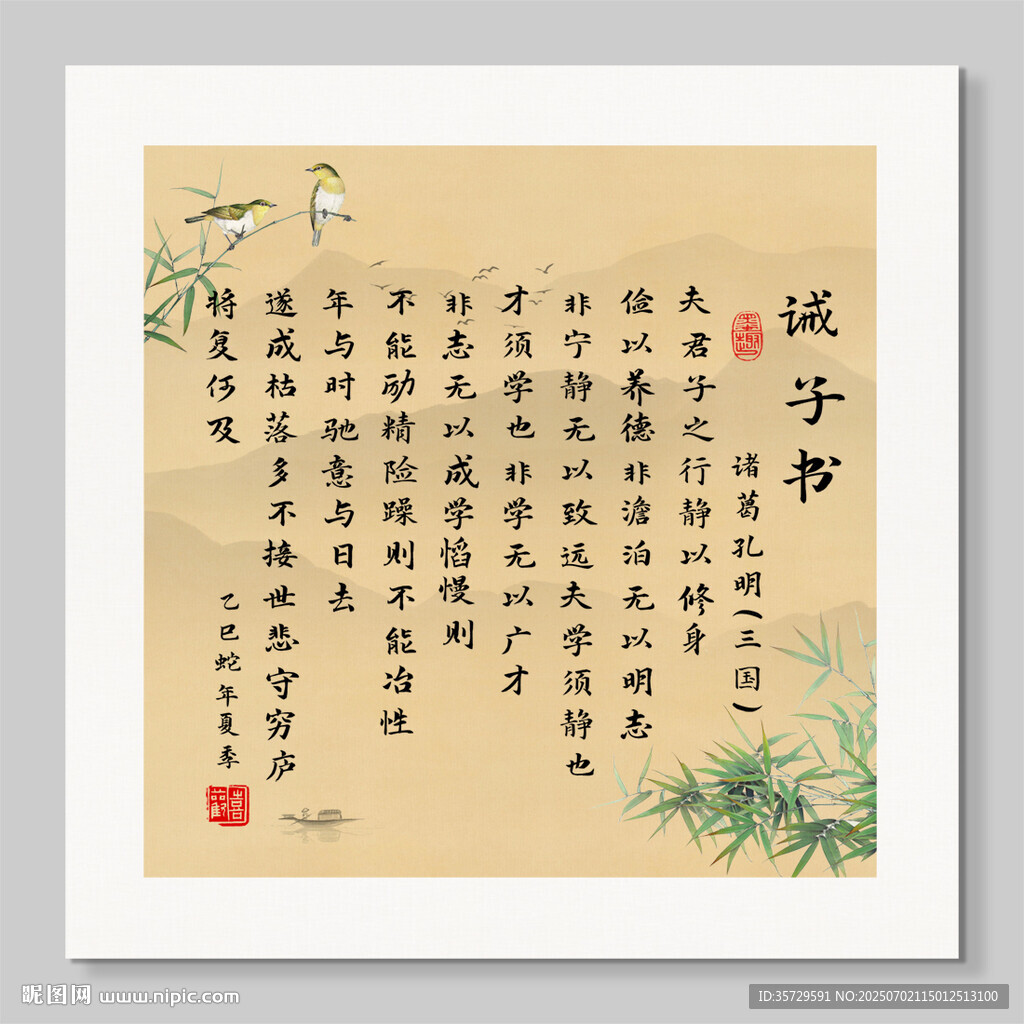 诫子书
墨趣
诸葛孔明(三国)
夫君子之行静以修身
俭以养德非澹泊无以明志
非宁静无以致远夫学须静也
才须学也非学无以广才
非志无以成学慆慢则
不能励精险躁则不能冶性
年与时驰意与日去
遂成枯落多不接世悲守穷庐
将复何及
乙巳蛇年夏季
昵图网 www.nipic.com
ID:35729591 NO:20250702115012513100